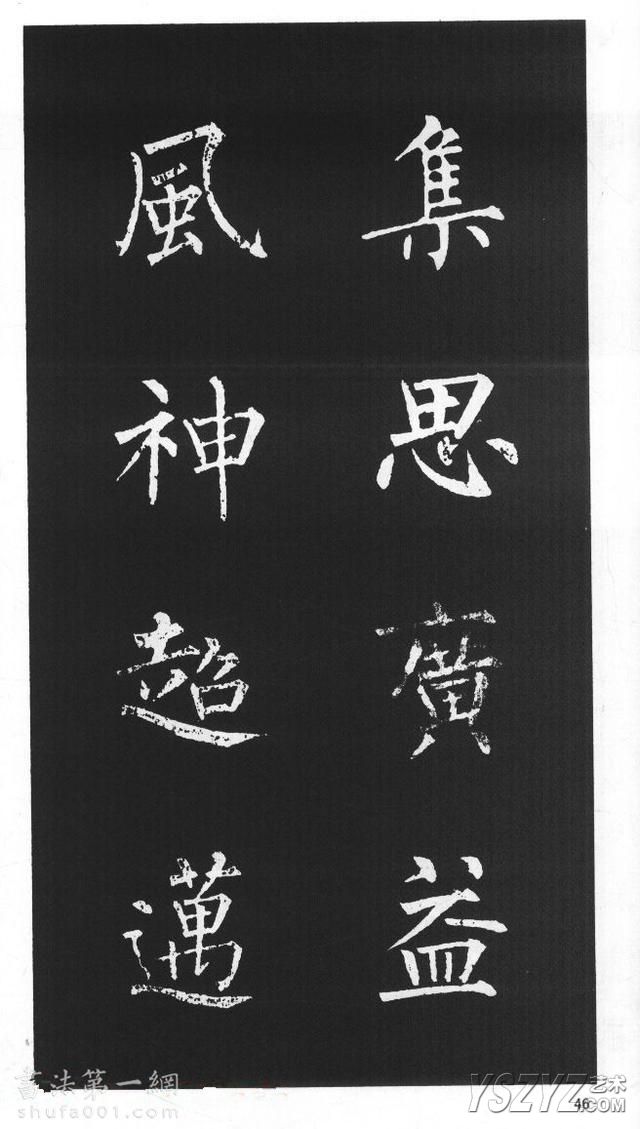 集思廣益
風神超邁
書法第一網
shufa001.com
46
YSZYZ艺术.COM